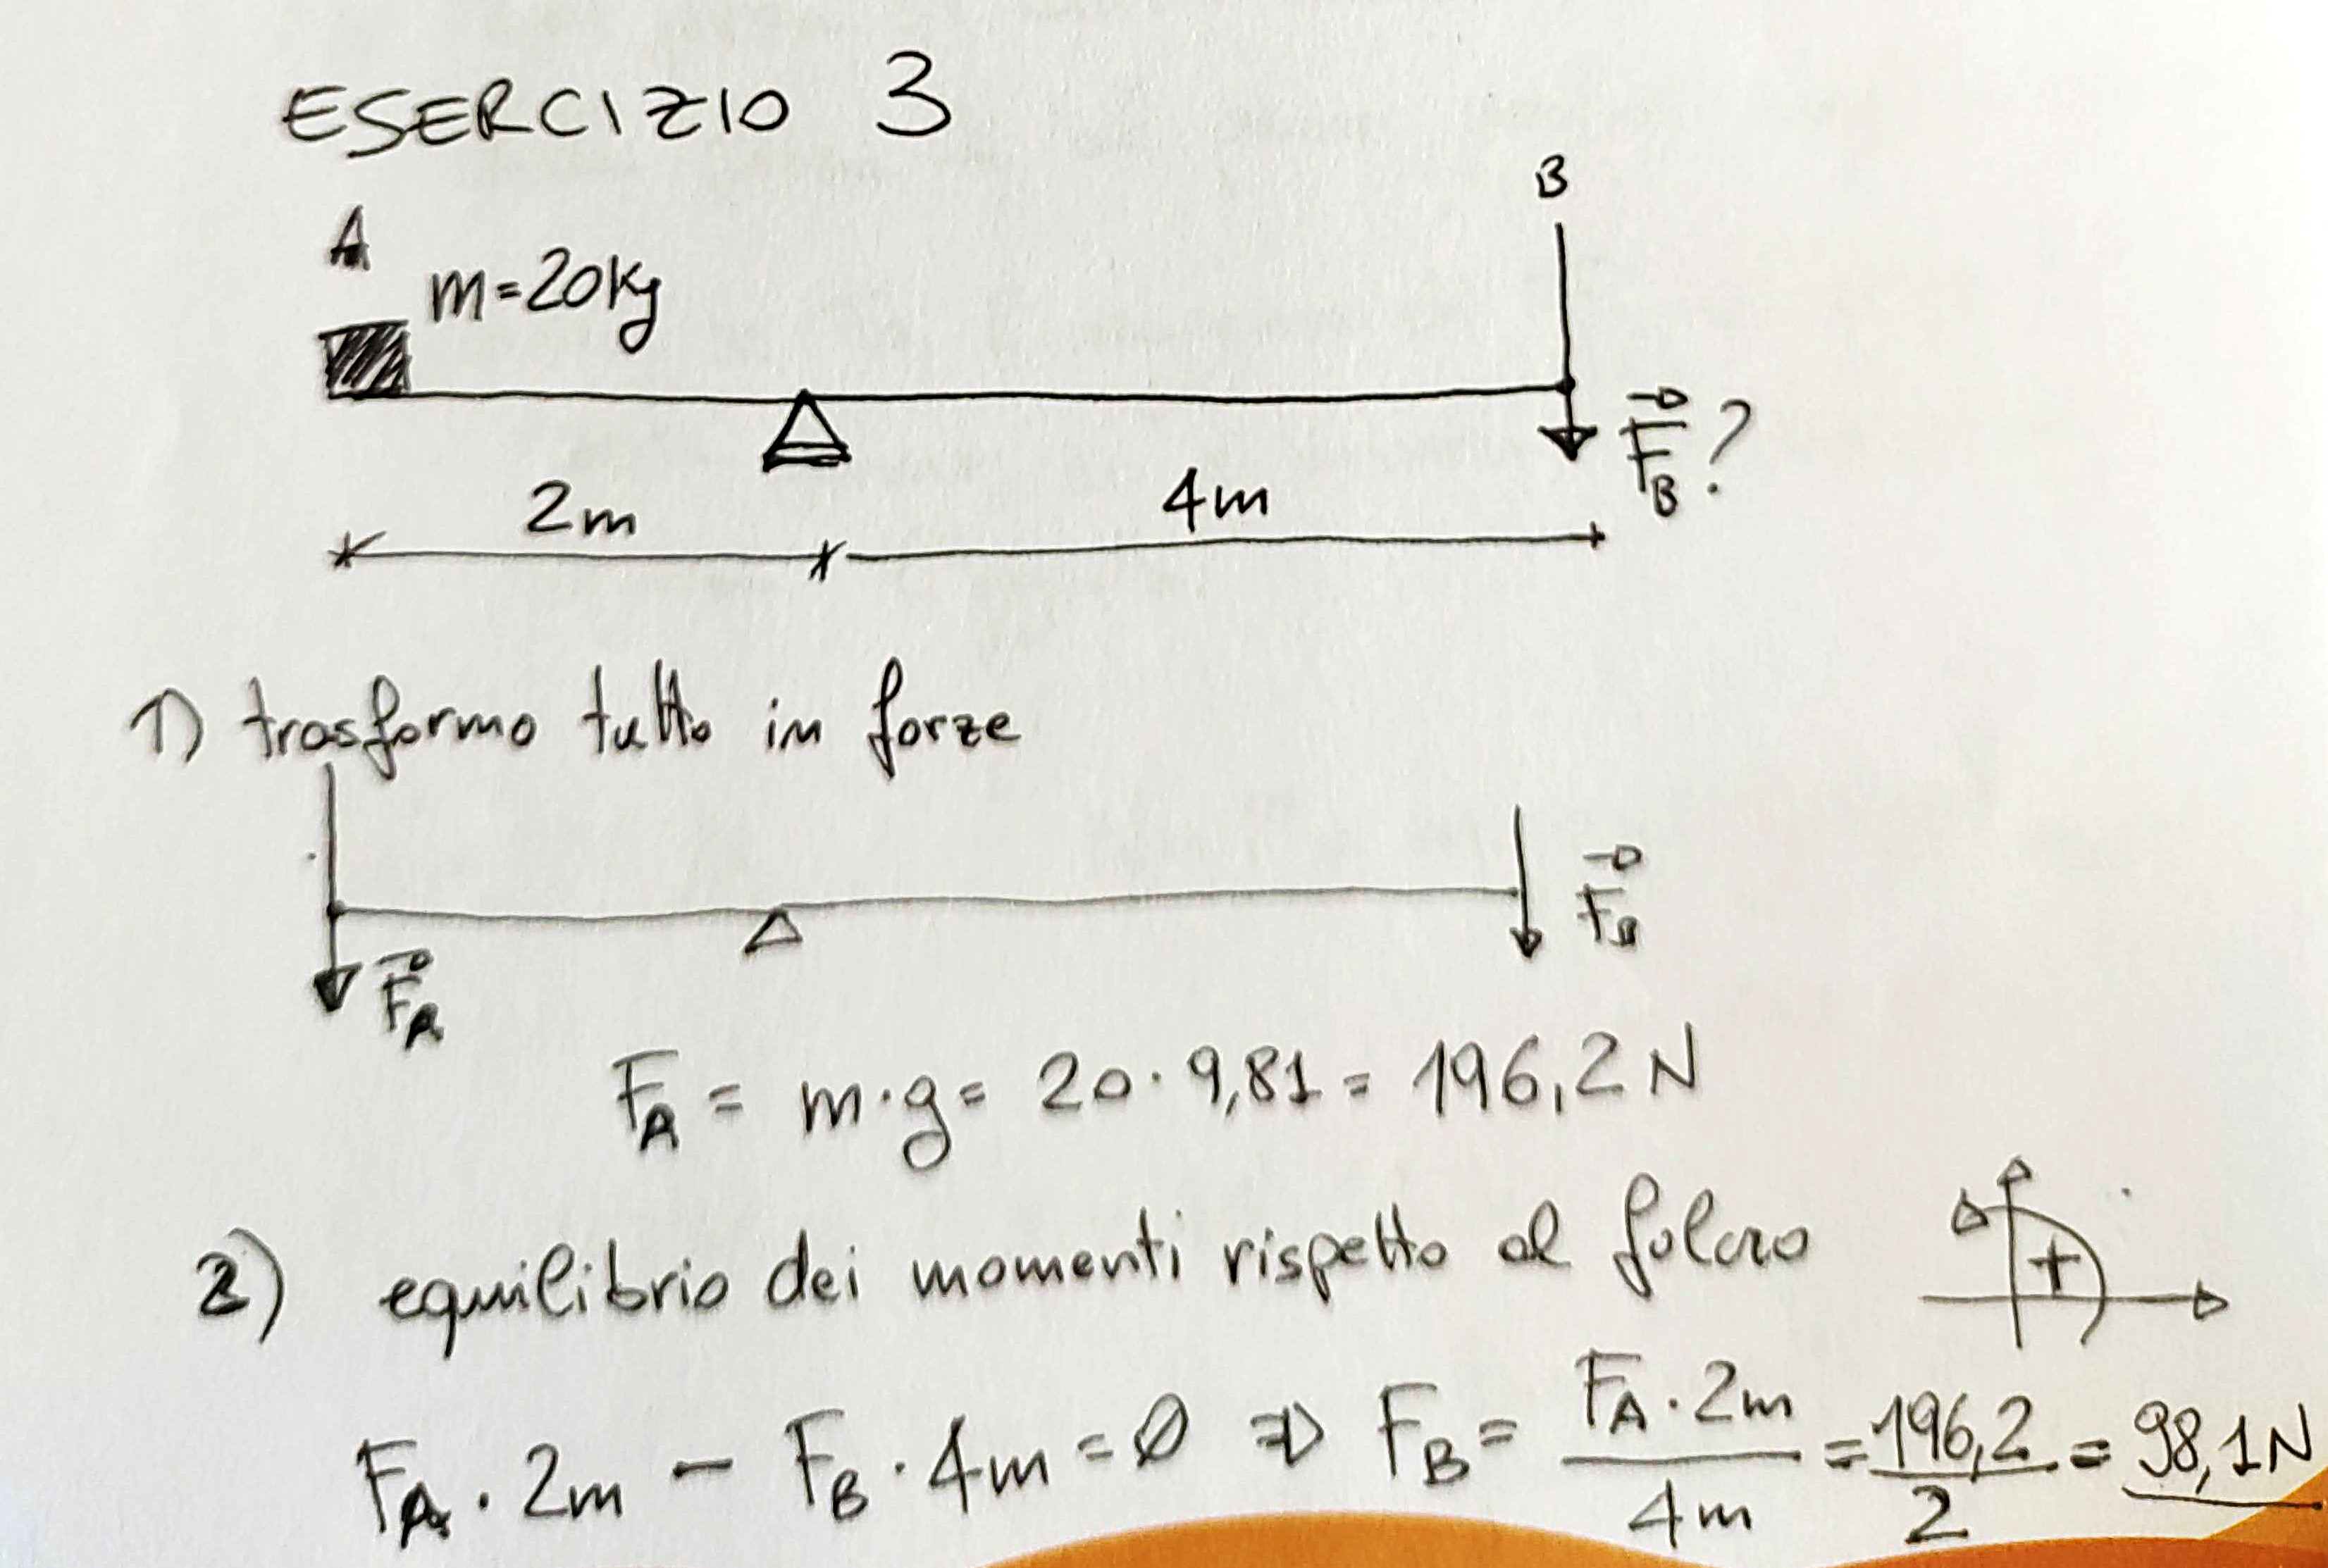 ESERCIZIO 3
A
B
m=20kg
F⃗B?
2m
4m
1) trasformo tutto in forze
F⃗A
F⃗B
FA = m·g= 20·9,81 = 196,2 N
2) equilibrio dei momenti rispetto al fulcro
+
FA · 2m - FB · 4m = Ø ⇒ FB = FA · 2m / 4m = 196,2 / 2 = 98,1N